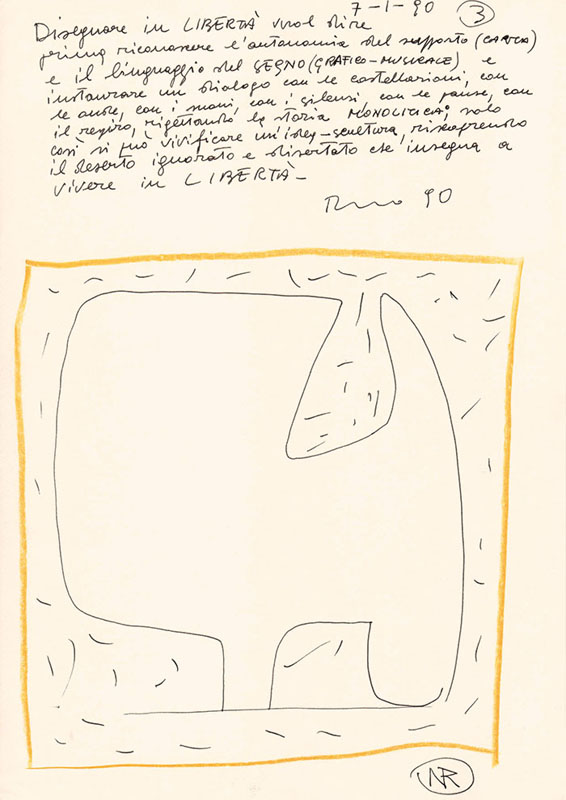 7-1-90 3
Disegnare in LIBERTÀ vuol dire
prima riconoscere l'autonomia del supporto (CARTA)
e il linguaggio del SEGNO (GRAFICO-MUSICALE) e
instaurare un dialogo con le costellazioni, con
le onde, con i suoni, con i silenzi con le pause, con
il respiro, rigettando la storia MONOLITICA; solo
così si può vivificare un'idea-scultura, riscoprendo
il deserto ignorato e disertato che insegna a
vivere in LIBERTÀ-
90
NR